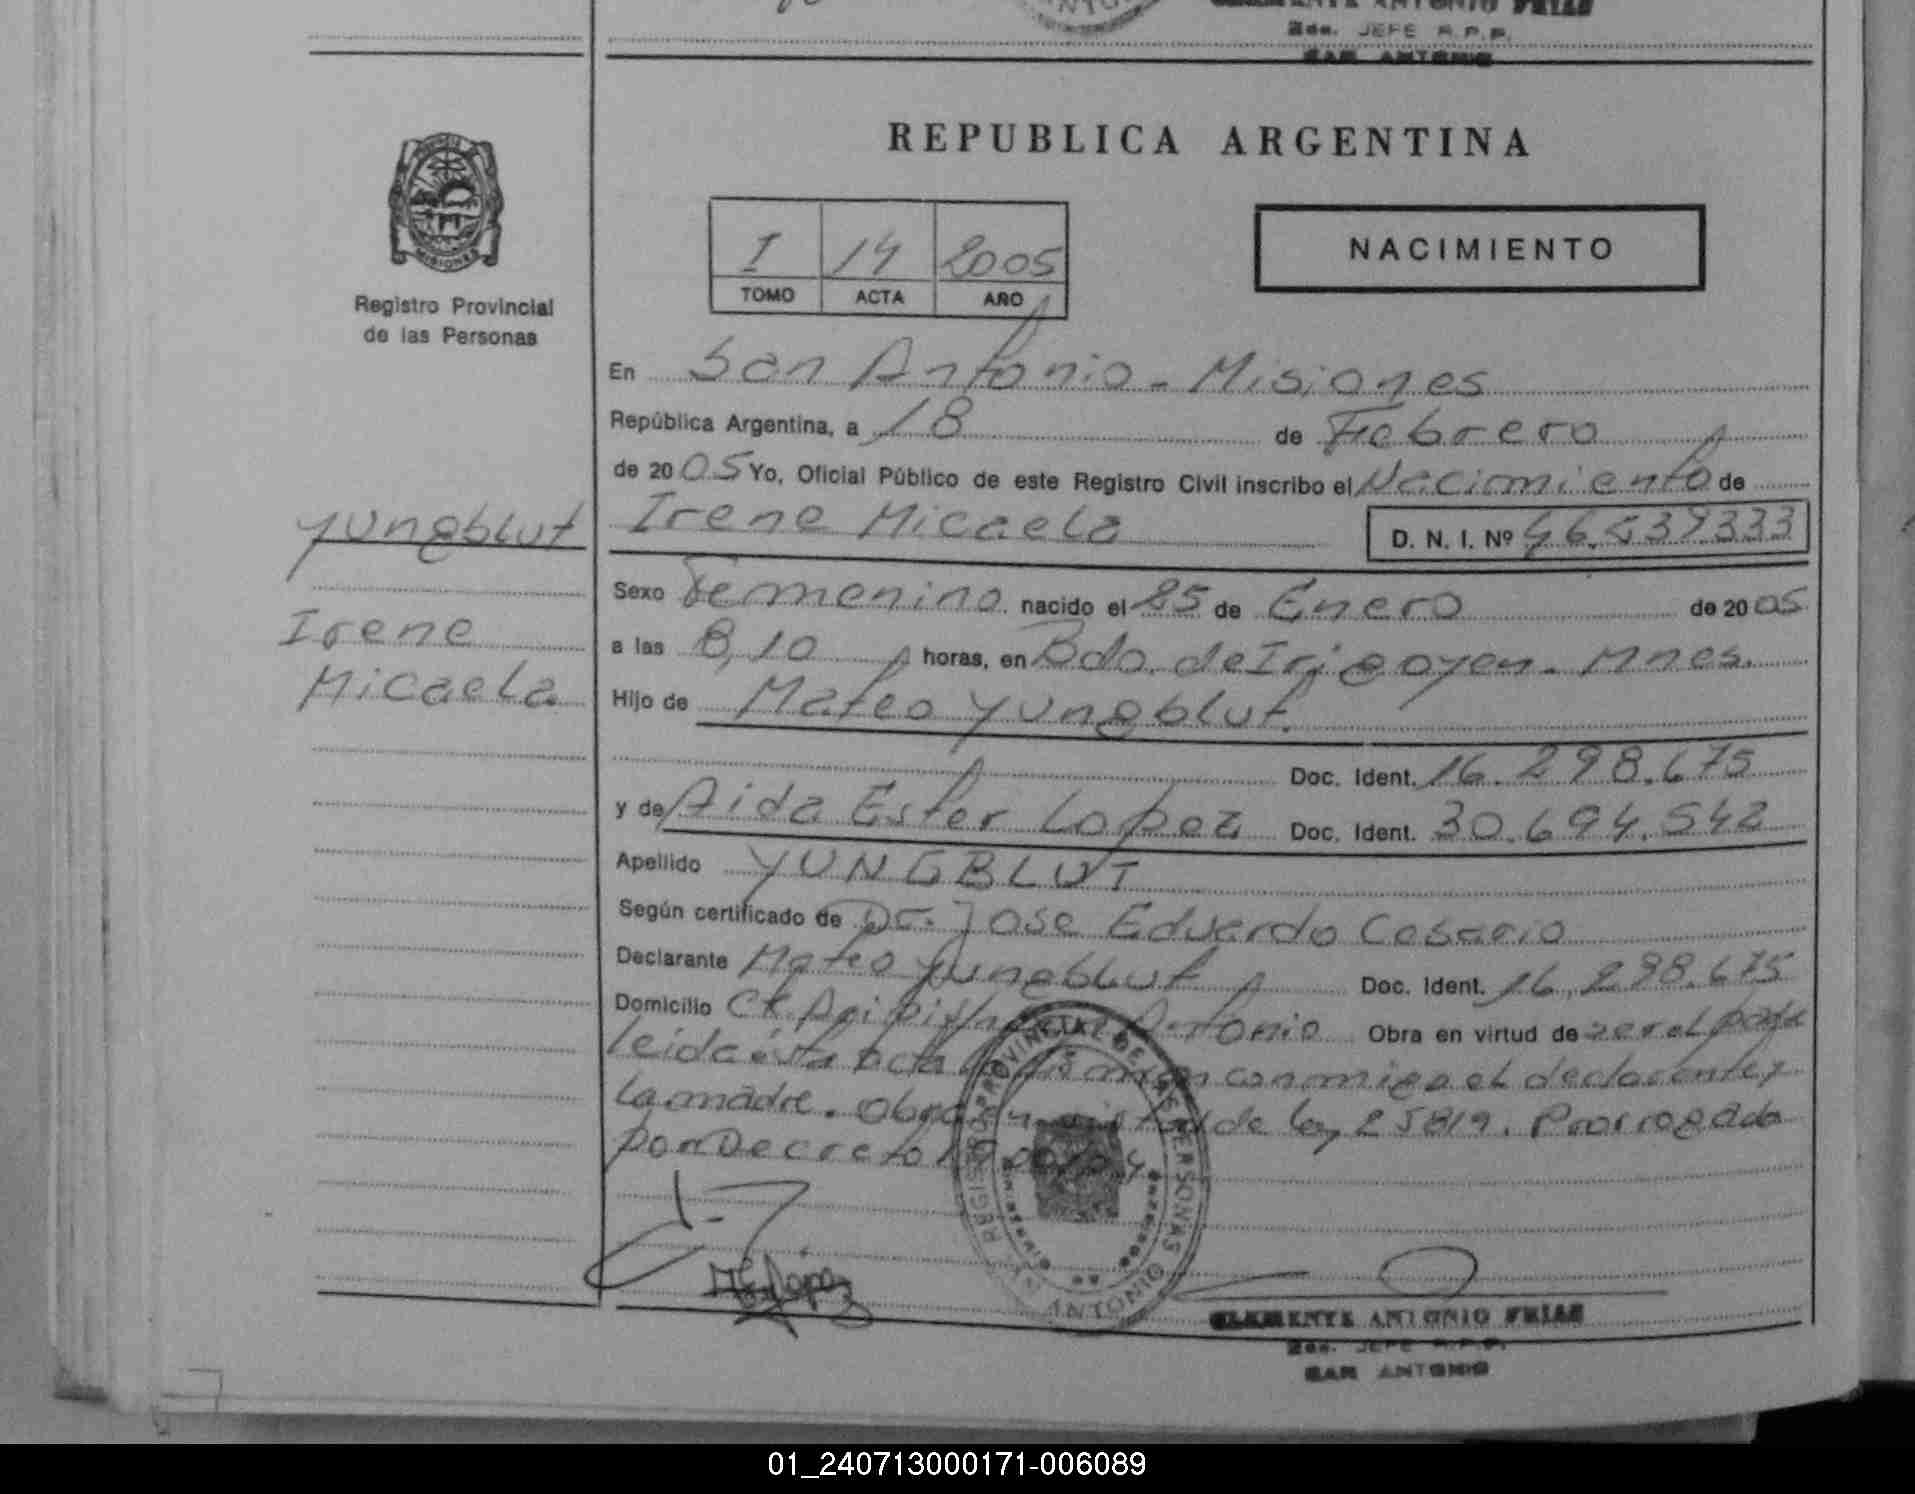 CLEMENTE ANTONIO FRIAS
2do. JEFE R.P.P.
SAN ANTONIO
REPUBLICA ARGENTINA
MISIONES
Registro Provincial
de las Personas
I 14 2005
TOMO ACTA AÑO
NACIMIENTO
En San Antonio - Misiones
República Argentina, a 18 de Febrero
de 2005 Yo, Oficial Público de este Registro Civil inscribo el Nacimiento de
Yungblut
Irene Micaela
D. N. I. Nº
Irene
Micaela
Sexo Femenino nacido el 25 de Enero de 2005
a las 8,10 horas, en Bdo. de Irigoyen - Mnes.
Hijo de Mateo Yungblut.
Doc. Ident. 16.298.675
y de Aida Ester Lopez Doc. Ident. 30.694.542
Apellido YUNGBLUT
Según certificado de Dr. Jose Eduardo
Declarante Mateo Yungblut Doc. Ident. 16.298.675
Domicilio Antonio Obra en virtud de ser el padre
leida esta acta la firman conmigo el declarante y
la madre. Obra en virtud de ley 25819. Prorrogada
por Decreto
REGISTRO PROVINCIAL DE LAS PERSONAS
SAN ANTONIO
CLEMENTE ANTONIO FRIAS
2do. JEFE R.P.P.
SAN ANTONIO
01_240713000171-006089